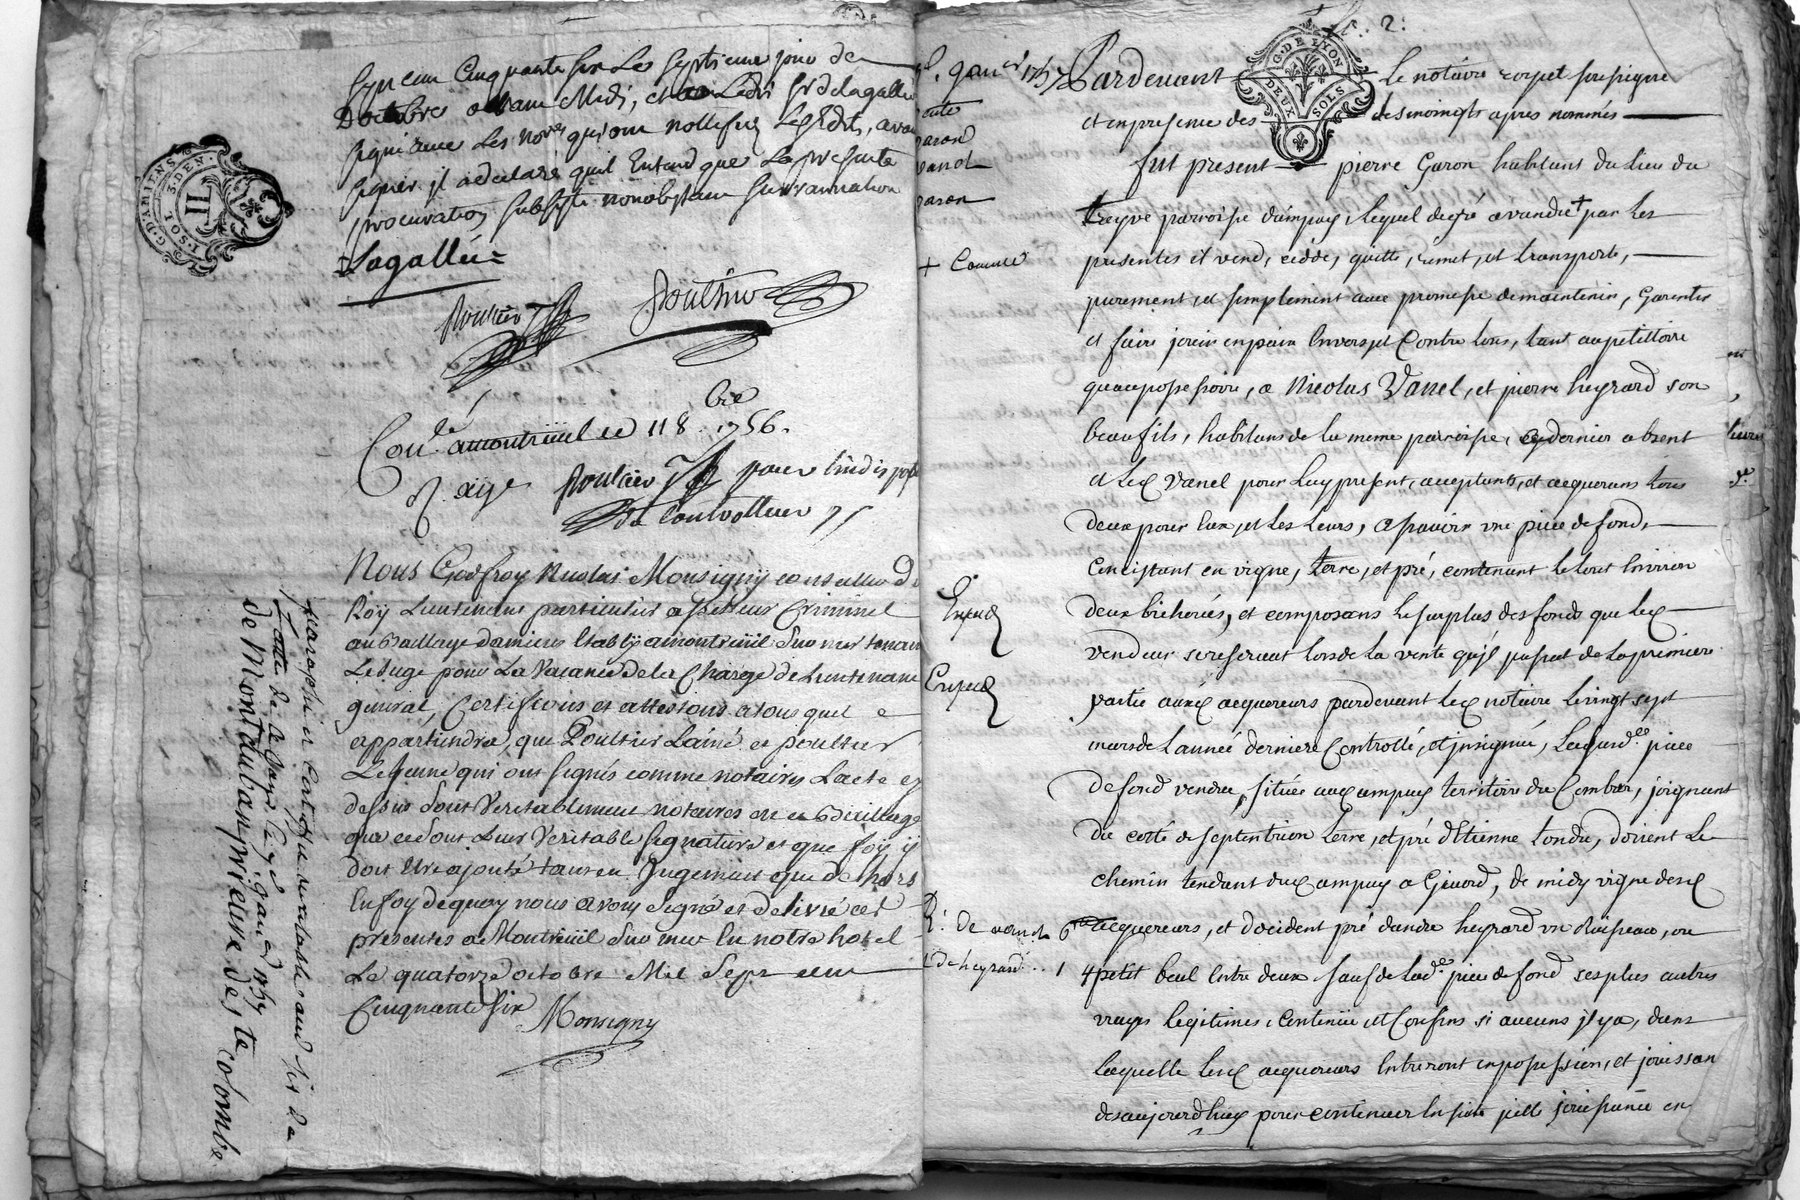 Sept cent Cinquante six Le Septieme jour de
Doctobre avant Midi, et Led. Sr. de Lagallée
signé avec Les nores. qui ont nottifié Les Edits, avant
signer il a declaré quil Entend que La presente
procuration subsiste nonobstant surrannation
Lagallée
Poultier Poultier
Con.lé amontreüil ce 118.bre 1756.
R. Poultier pour lindisposé
de Controlleur
Nous Godfroy Nicolas Monsigny conseiller du
Roy Lieutenant particulier assesseur Criminel
au Bailliage damiens Etably amontreüil Sur mer tenant
Le Siege pour La Vacance de la Charge de Lieutenant
general, Certifions et attestons a tous quil
appartiendra, que Poultier Lainé et poultier
Lejeune qui ont signés comme notaires Lacte cy
dessus sont Veritablement notaires en ce Bailliage
que ce sont Leur Veritable signature et que foy y
doit Etre ajouté tant en Jugement que dehors
En foy dequoy nous avons signé et delivré ces
presentes a Montreüil Sur mer En notre hotel
Le quatorze octobre Mil Sept cent
Cinquante six
Monsigny
paraphé et certifié veritable au desir de
Lacte de ce jour le 9 janv. 1757
de Montauban prieure de, te colombe
G. D'AMIENS
1. SOL 3. DEN.
II
fo. 2.
G. DE LYON
DEUX SOLS
9. janer. 1757
vente
Garon
Vanel
Garon
Pardevant Le notaire royal soussigné
et en presence des temoingts apres nommés
fut present pierre Garon habitant du Lieu du
treyve parroisse dampuy, lequel de gré a vandu + par Les
+ Comme
presentes il vend, cedde, quitte, remet, et transporte,
purement, et simplement avec promesse de maintenir, Garentir
et faire joüir en paix Envers, et Contre tous, tant au petittoire
qu'au possessoire, a Nicolas Vanel, et pierre heyrard son
beau fils, habitans de la meme parroisse, ce dernier absent
et Led. Vanel pour Luy present, acceptant, et acquerant tous
deux pour Eux, et Les Leurs, a sçavoir une piece de fond,
Concistant en vigne, terre, et pré, contenant le tout Environ
deux bicherées, et composans Le surplus des fonds que Led.
vendeur se reservat lors de la vente qu'il passat de la premiere
partie auxd. acquereurs pardevant Led. notaire le vingt sept
mars de L'année derniere Controllé, et insignué, Laquelle piece
de fond vendue, située aud. ampuy territoire du Combar, joignant
du cotté de septentrion terre, et pré d'Etienne tondu, d'orient Le
chemin tendant dud. ampuy a Givord, de midy vigne desd.
R. de vanel 6
acquereurs, et d'occident pré d'andre heyrard un Ruisseau, ou
de heyrard .. 1
petit beal Entre deux sauf de lad. piece de fond ses plus autres
vrays legitimes, Contenüe, et Confins si aucuns il y a, dans
laquelle Lesd. acquereurs Entreront en possession, et jouissance
des aujourd'huy pour continuer En suite icelle jouissance en